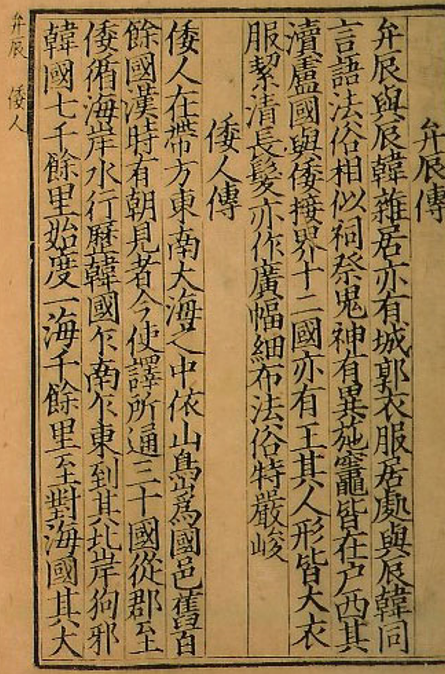 弁辰傳
弁辰與辰韓雜居亦有城郭衣服居處與辰韓同
言語法俗相似祠祭鬼神有異施竈皆在戶西其
瀆盧國與倭接界十二國亦有王其人形皆大衣
服絜清長髮亦作廣幅細布法俗特嚴峻
倭人傳
倭人在帶方東南大海之中依山島爲國邑舊百
餘國漢時有朝見者今使譯所通三十國從郡至
倭循海岸水行歷韓國乍南乍東到其北岸狗邪
韓國七千餘里始度一海千餘里至對海國其大
弁辰 倭人